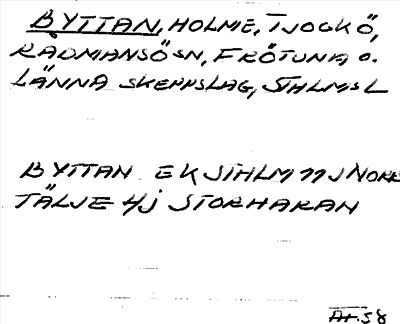 BYTTAN, HOLME, TJOCKÖ,
RÅDMANSÖ SN, FRÖTUNA O.
LÄNNA SKEPPSLAG, STHLMS L
BYTTAN EK STHLM 11J NORR
TÄLJE 4J STORHARAN